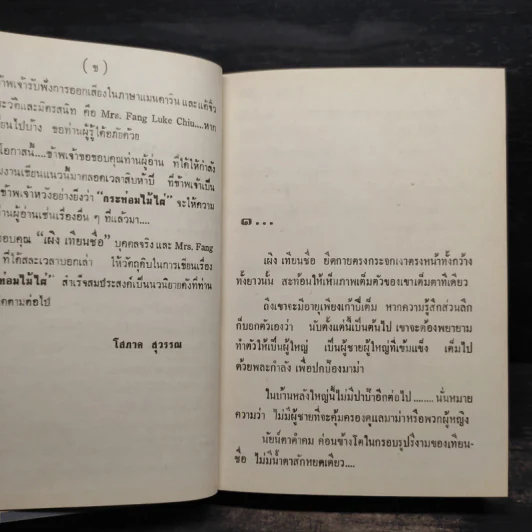 ( ข )
ข้าพเจ้ารับฟังการออกเสียงในภาษาแมนดาริน และแต้จิ๋ว
และมิตรสนิท คือ Mrs. Fang Luke Chiu....หาก
เขียนไปบ้าง ขอท่านผู้รู้ได้อภัยด้วย
โอกาสนี้....ข้าพเจ้าขอขอบคุณท่านผู้อ่าน ที่ได้ให้กำลัง
งานเขียนแนวนี้มาตลอดเวลาสิบห้าปี ที่ข้าพเจ้าเป็น
ข้าพเจ้าหวังอย่างยิ่งว่า "กระท่อมไม้ไผ่" จะให้ความ
ท่านผู้อ่านเช่นเรื่องอื่น ๆ ที่แล้วมา....
ขอบคุณ "เผิง เทียนชื่อ" บุคคลจริง และ Mrs. Fang
ที่ได้สละเวลาบอกเล่า ให้วัตถุดิบในการเขียนเรื่อง
ท่อมไม้ไผ่" สำเร็จสมประสงค์เป็นนวนิยายดังที่ท่าน
ติดตามต่อไป
โสภาค สุวรรณ
๑...
เผิง เทียนชื่อ ยืดกายตรงกระจกเงาตรงหน้าทั้งกว้าง
ทั้งยาวนั้น สะท้อนให้เห็นภาพเต็มตัวของเขาเต็มตาทีเดียว
ถึงเขาจะมีอายุเพียงเก้าปีเต็ม หากความรู้สึกส่วนลึก
ก็บอกตัวเองว่า นับตั้งแต่นี้เป็นต้นไป เขาจะต้องพยายาม
ทำตัวให้เป็นผู้ใหญ่ เป็นผู้ชายผู้ใหญ่ที่เข้มแข็ง เต็มไป
ด้วยพละกำลัง เพื่อปกป้องมาม่า
ในบ้านหลังใหญ่นี้ไม่มีปาป๊าอีกต่อไป ........ นั่นหมาย
ความว่า ไม่มีผู้ชายที่จะคุ้มครองดูแลมาม่าหรือพวกผู้หญิง
นัยน์ตาดำคม ค่อนข้างโตในกรอบรูปรีงามของเทียน-
ชื่อ ไม่มีน้ำตาสักหยดเดียว....